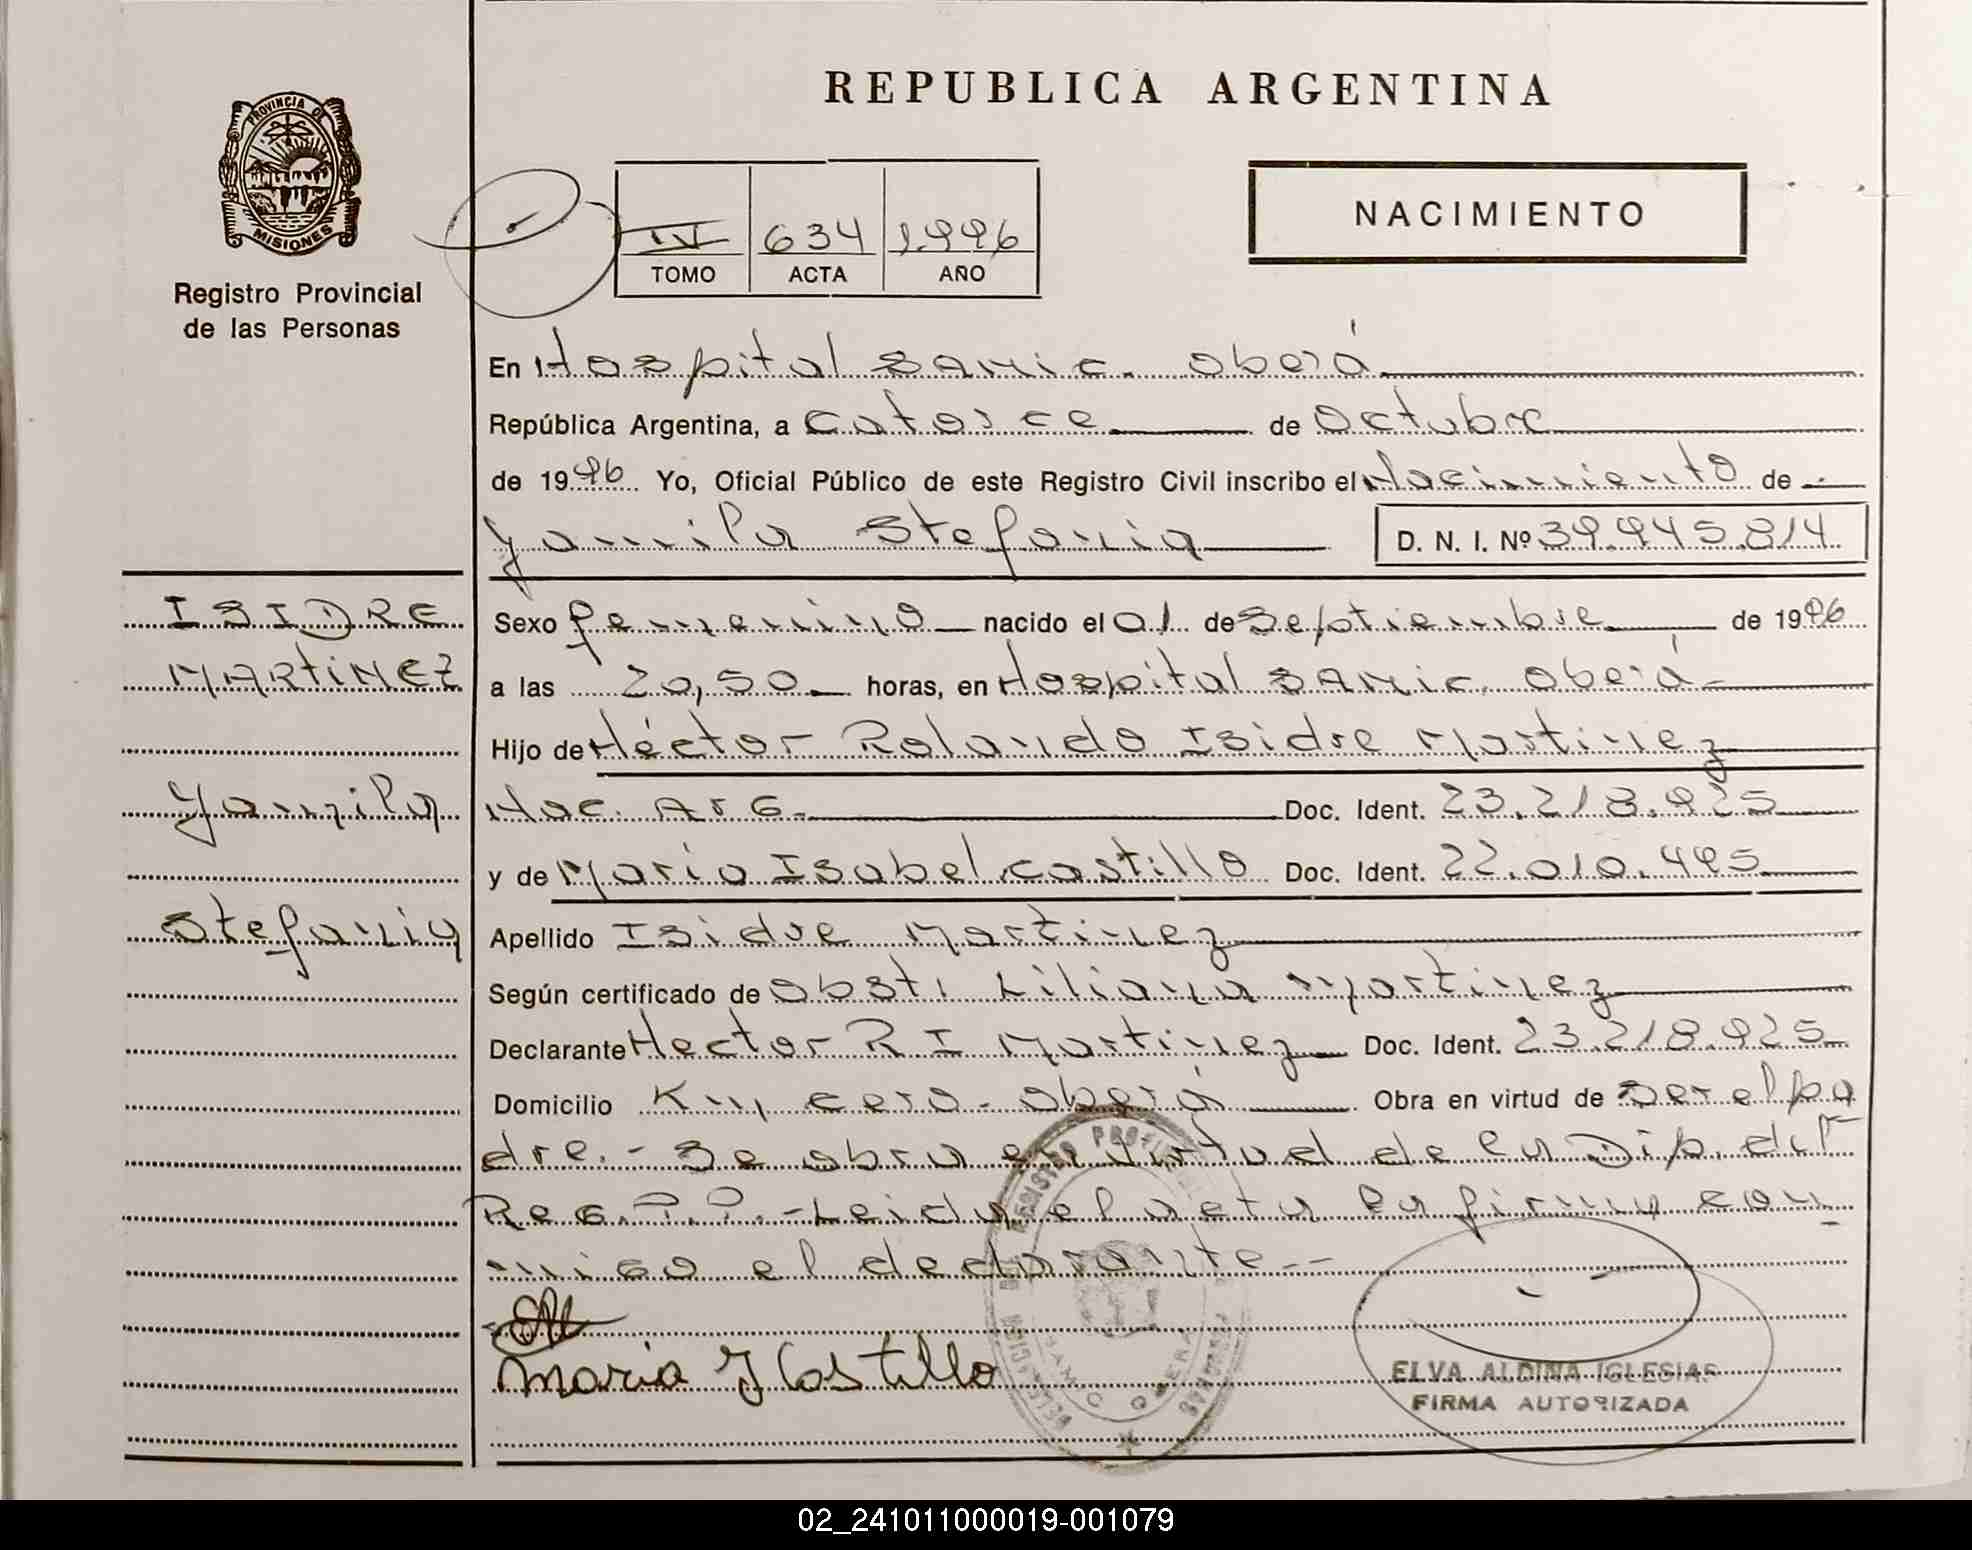 REPUBLICA ARGENTINA
PROVINCIA DE
MISIONES
Registro Provincial
de las Personas
IV 634 1996
TOMO ACTA AÑO
NACIMIENTO
En Hospital SAMIC. Oberá
República Argentina, a Catorce de Octubre
de 1996 Yo, Oficial Público de este Registro Civil inscribo el Nacimiento de
Yamila Stefania D. N. I. Nº 39.945.814
ISIDRE
MARTINEZ
Yamila
Stefania
Sexo femenino nacido el 01 de Septiembre de 1996
a las 20,50 horas, en Hospital SAMIC. Oberá
Hijo de Héctor Rolando Isidre Martinez
Nac. Arg. Doc. Ident. 23.218.925
y de Maria Isabel Castillo Doc. Ident. 22.010.495
Apellido Isidre Martinez
Según certificado de Obst. Liliana Martinez
Declarante Hector R. I Martinez Doc. Ident. 23.218.925
Domicilio Km, cero - Oberá Obra en virtud de Ser el pa
dre. - Se obra en virtud de la Dip. del
Reg. P. P. - Leida el acta la firma con
migo el declarante. -
Maria I Castillo
ELVA ALDINA IGLESIAS
FIRMA AUTORIZADA
REGISTRO
SAMIC OBERA
02_241011000019-001079